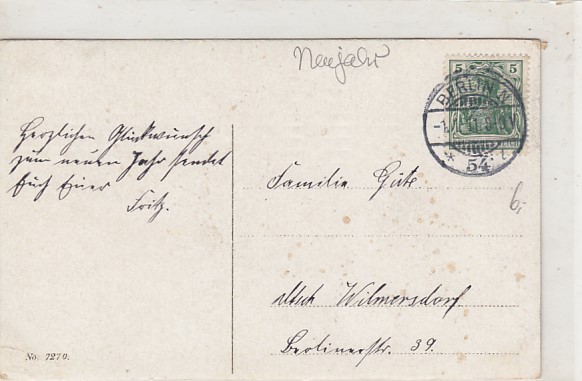 Neujahr
5 5
BERLIN W
* 54
Herzlichen Glückwunsch
zum neuen Jahr sendet
Euch Euer
Fritz.
Familie Güte
6,-
Dtsch Wilmersdorf
Berlinerstr. 39.
No. 7270.